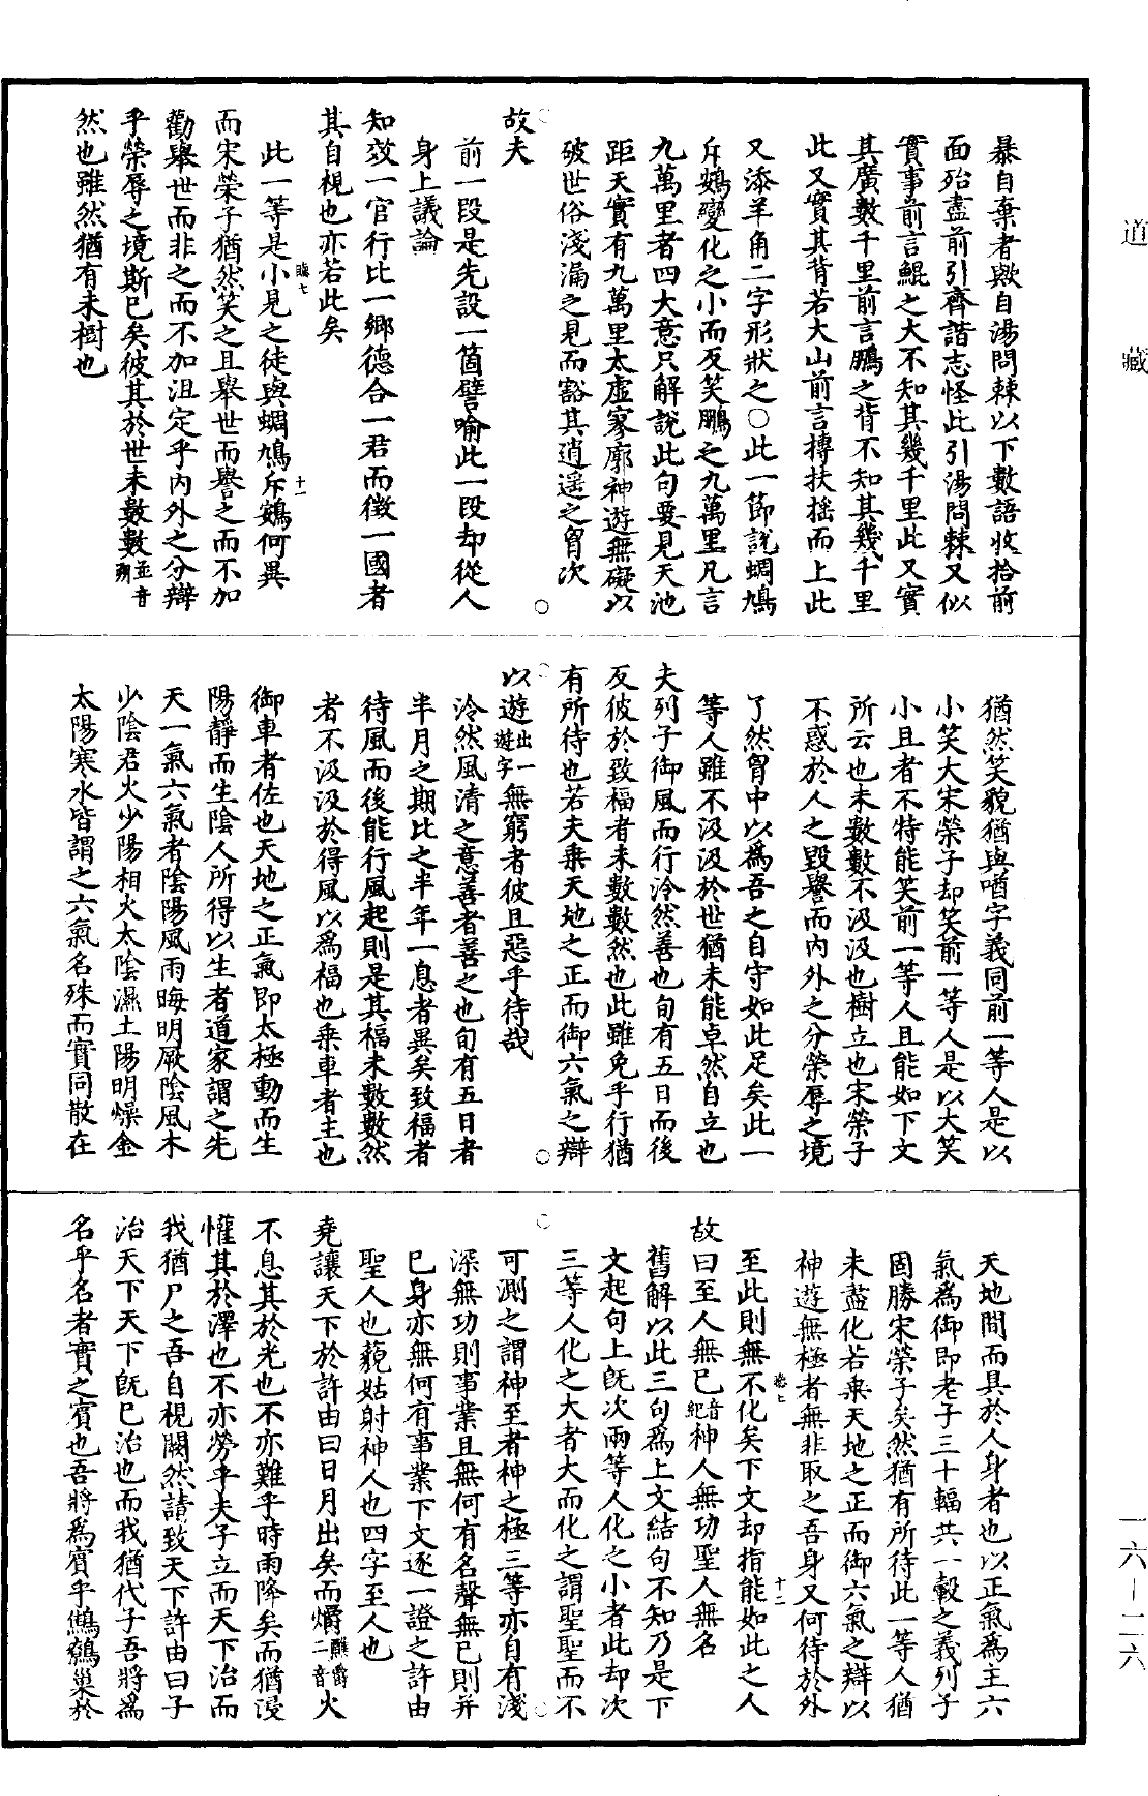 道藏
一六—二六
暴自棄者歟自湯問棘以下數語收拾前
面殆盡前引齊諧志怪此引湯問棘又似
實事前言鯤之大不知其幾千里此又實
其廣數千里前言鵬之背不知其幾千里
此又實其背若大山前言摶扶搖而上此
又添羊角二字形狀之〇此一節說蜩鳩
斥鷃變化之小而反笑鵬之九萬里凡言
九萬里者四大意只解說此句要見天池
距天實有九萬里太虛寥廓神遊無礙以
破世俗淺漏之見而豁其逍遥之胷次
故夫
前一段是先設一箇譬喻此一段却從人
身上議論
知效一官行比一鄉德合一君而徵一國者
其自視也亦若此矣
此一等是小見之徒與蜩鳩斥鷃何異
而宋榮子猶然笑之且舉世而譽之而不加
勸舉世而非之而不加沮定乎内外之分辯
乎榮辱之境斯已矣彼其於世未數數並音朔
然也雖然猶有未樹也
猶然笑貌猶與啗字義同前一等人是以
小笑大宋榮子却笑前一等人是以大笑
小且者不特能笑前一等人且能如下文
所云也未數數不汲汲也樹立也宋榮子
不惑於人之毀譽而内外之分榮辱之境
了然胷中以為吾之自守如此足矣此一
等人雖不汲汲於世猶未能卓然自立也
夫列子御風而行泠然善也旬有五日而後
反彼於致福者未數數然也此雖免乎行猶
有所待也若夫乘天地之正而御六氣之辯
以遊出一遊字無窮者彼且惡乎待哉
泠然風清之意善者善之也旬有五日者
半月之期比之半年一息者異矣致福者
待風而後能行風起則是其福未數數然
者不汲汲於得風以為福也乘車者主也
御車者佐也天地之正氣即太極動而生
陽靜而生陰人所得以生者道家謂之先
天一氣六氣者陰陽風雨晦明厥陰風木
少陰君火少陽相火太陰濕土陽明燥金
太陽寒水皆謂之六氣名殊而實同散在
天地間而具於人身者也以正氣為主六
氣為御即老子三十輻共一轂之義列子
固勝宋榮子矣然猶有所待此一等人猶
未盡化若乘天地之正而御六氣之辯以
神遊無極者無非取之吾身又何待於外
至此則無不化矣下文却指能如此之人
故曰至人無己音紀神人無功聖人無名
舊解以此三句為上文結句不知乃是下
文起句上既次兩等人化之小者此却次
三等人化之大者大而化之謂聖聖而不
可測之謂神至者神之極三等亦自有淺
深無功則事業且無何有名聲無已則并
已身亦無何有事業下文逐一證之許由
聖人也藐姑射神人也四字至人也
堯讓天下於許由曰日月出矣而爝二音火
不息其於光也不亦難乎時雨降矣而猶浸
灌其於澤也不亦勞乎夫子立而天下治而
我猶尸之吾自視闕然請致天下許由曰子
治天下天下既已治也而我猶代子吾將為
名乎名者實之賓也吾將為賓乎鷦鷯巢於